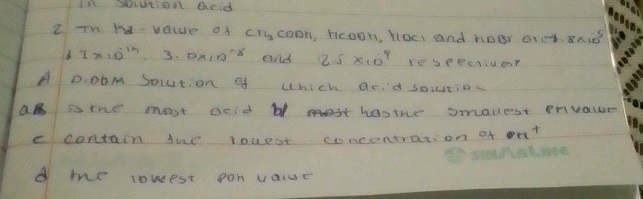 in solution acid
2 The ka-value of CH3COOH, HCOOH, HOCl and HOBr are 1.8x10-5
1.7x10-4, 3.0x10-8 and 2.5 x10-9 respectiver
A 0.00M Solution of which acid solution
a is the most acid b/ has the smallest pH value
c contain the lowest concentration of OH+
SINARLINE
d the lowest pOH value